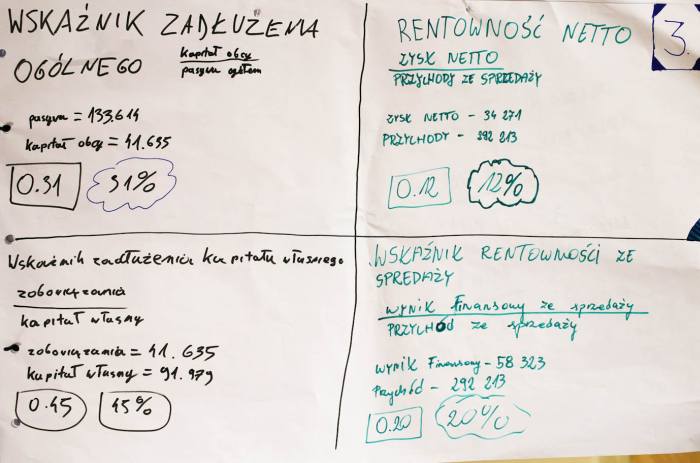 WSKAŹNIK ZADŁUŻENIA
OGÓLNEGO
kapitał obcy
pasywa ogółem
pasywa = 133.614
kapitał obcy = 41.635
0.31 31%
RENTOWNOŚĆ NETTO
3.
ZYSK NETTO
PRZYCHODY ZE SPRZEDAŻY
ZYSK NETTO - 34 271
PRZYCHODY - 292 213
0.12 12%
Wskaźnik zadłużenia kapitału własnego
zobowiązania
kapitał własny
zobowiązania = 41.635
kapitał własny = 91.979
0.45 45%
WSKAŹNIK RENTOWNOŚCI ZE
SPREDAŻY
WYNIK Finansowy ze sprzedaży
PRZYCHÓd ze sprzedaży
WYNIK Finansowy - 58 323
Przychód - 292 213
0.20 20%